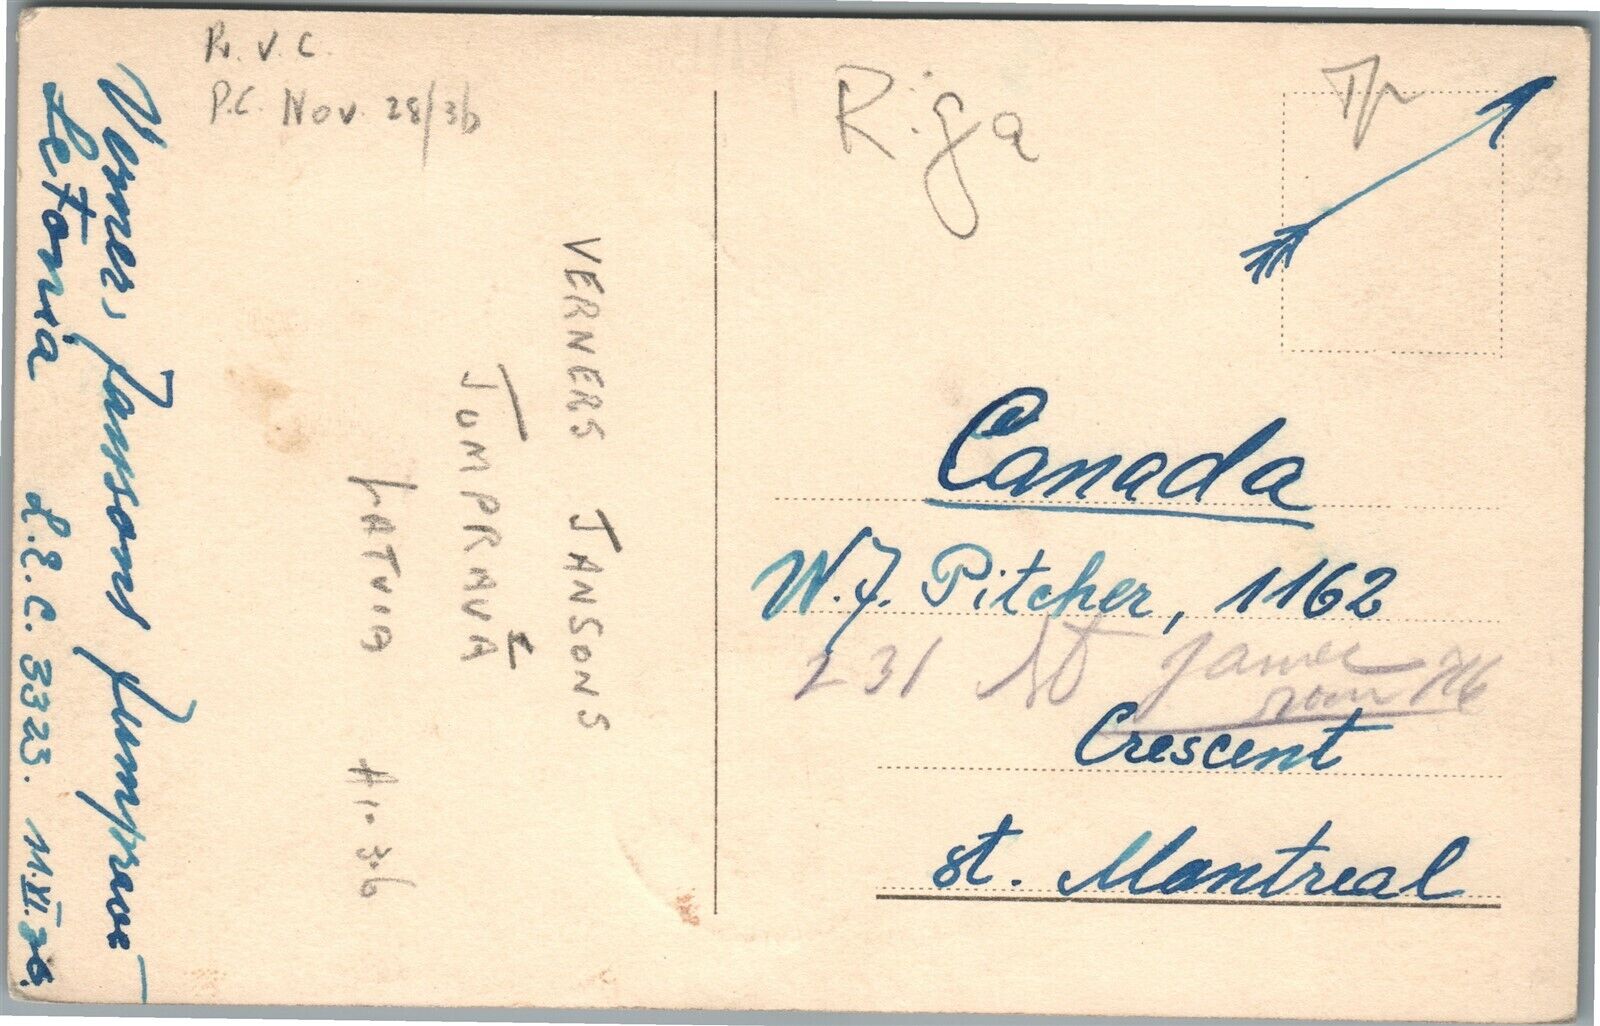 R.V.C.
P.C. Nov. 28/36
Verners Jansons Jumpravā
Letonia L.E.C. 3323. 11.XI.36.
VERNERS JANSONS
JUMPRAVĀ
LATVIA
Riga
Canada
W.J. Pitcher, 1162
231 St James
room
Crescent
st. Montreal